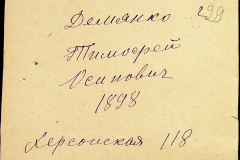 299
Демянко
Тимофей
Осипович
1898
Херсонская 118